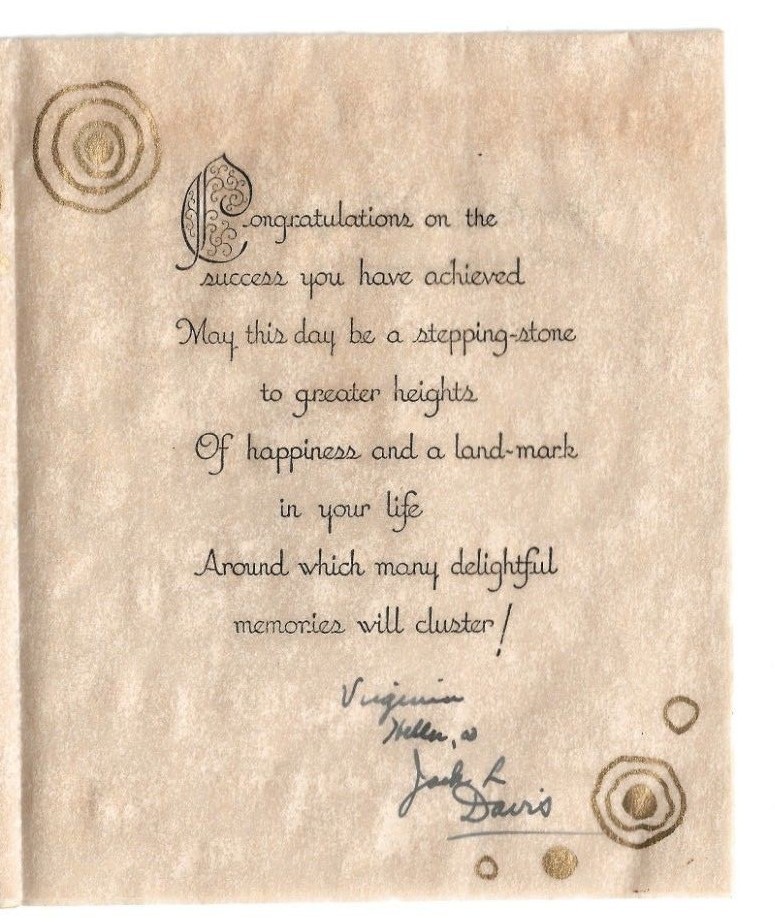 Congratulations on the
success you have achieved
May this day be a stepping-stone
to greater heights
Of happiness and a land-mark
in your life
Around which many delightful
memories will cluster!
Virginia
Jack L
Davis